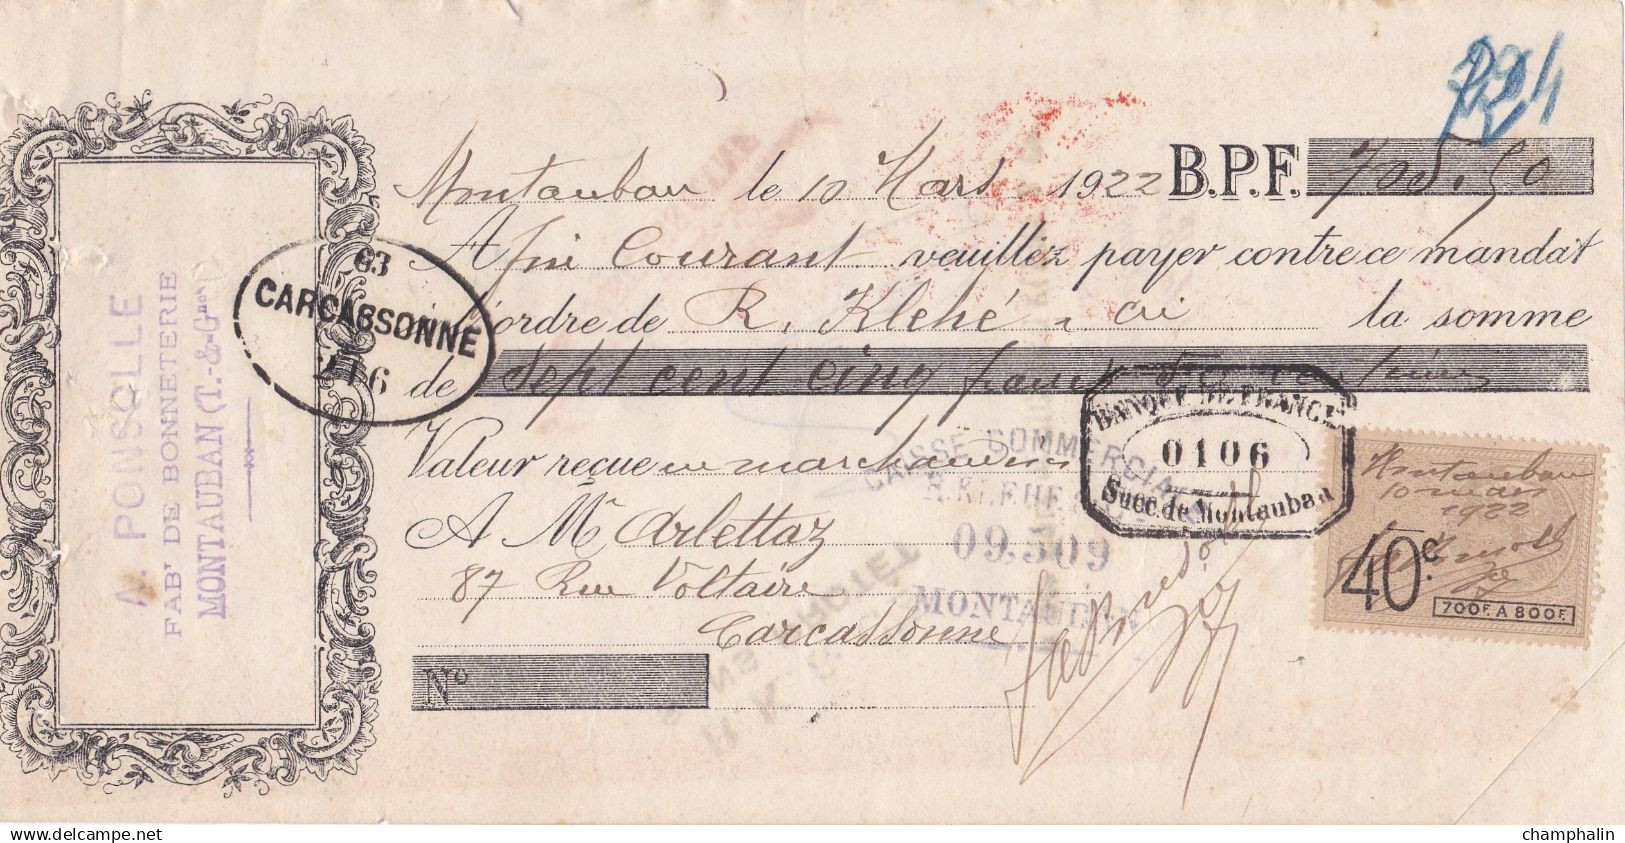 A. PONSOLLE
FABt DE BONNETERIE
MONTAUBAN (T.-&-Gnne)
Montauban le 10 Mars 1922 B.P.F. 705.50
A fin Courant veuillez payer contre ce mandat
l'ordre de R. Klehé & Cie la somme
de Sept cent cinq francs centimes
Valeur reçue en marchandises
A Mr Arlettaz
87 Rue Voltaire
Carcassonne
No
63
CARCASSONNE
216
BANQUE DE FRANCE
0106
Succ. de Montauban
CAISSE COMMERCIALE
R. KLEHE &
09.509
MONTAUBAN
Montauban
10 mars
1922
40c.
700F. A 800F.
delcampe.net
champhalin